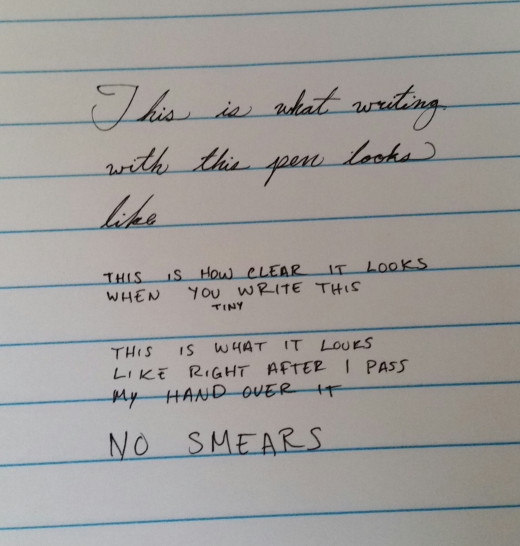 This is what writing
with this pen looks
like
THIS IS HOW CLEAR IT LOOKS
WHEN YOU WRITE THIS
TINY
THIS IS WHAT IT LOOKS
LIKE RIGHT AFTER I PASS
MY HAND OVER IT
NO SMEARS